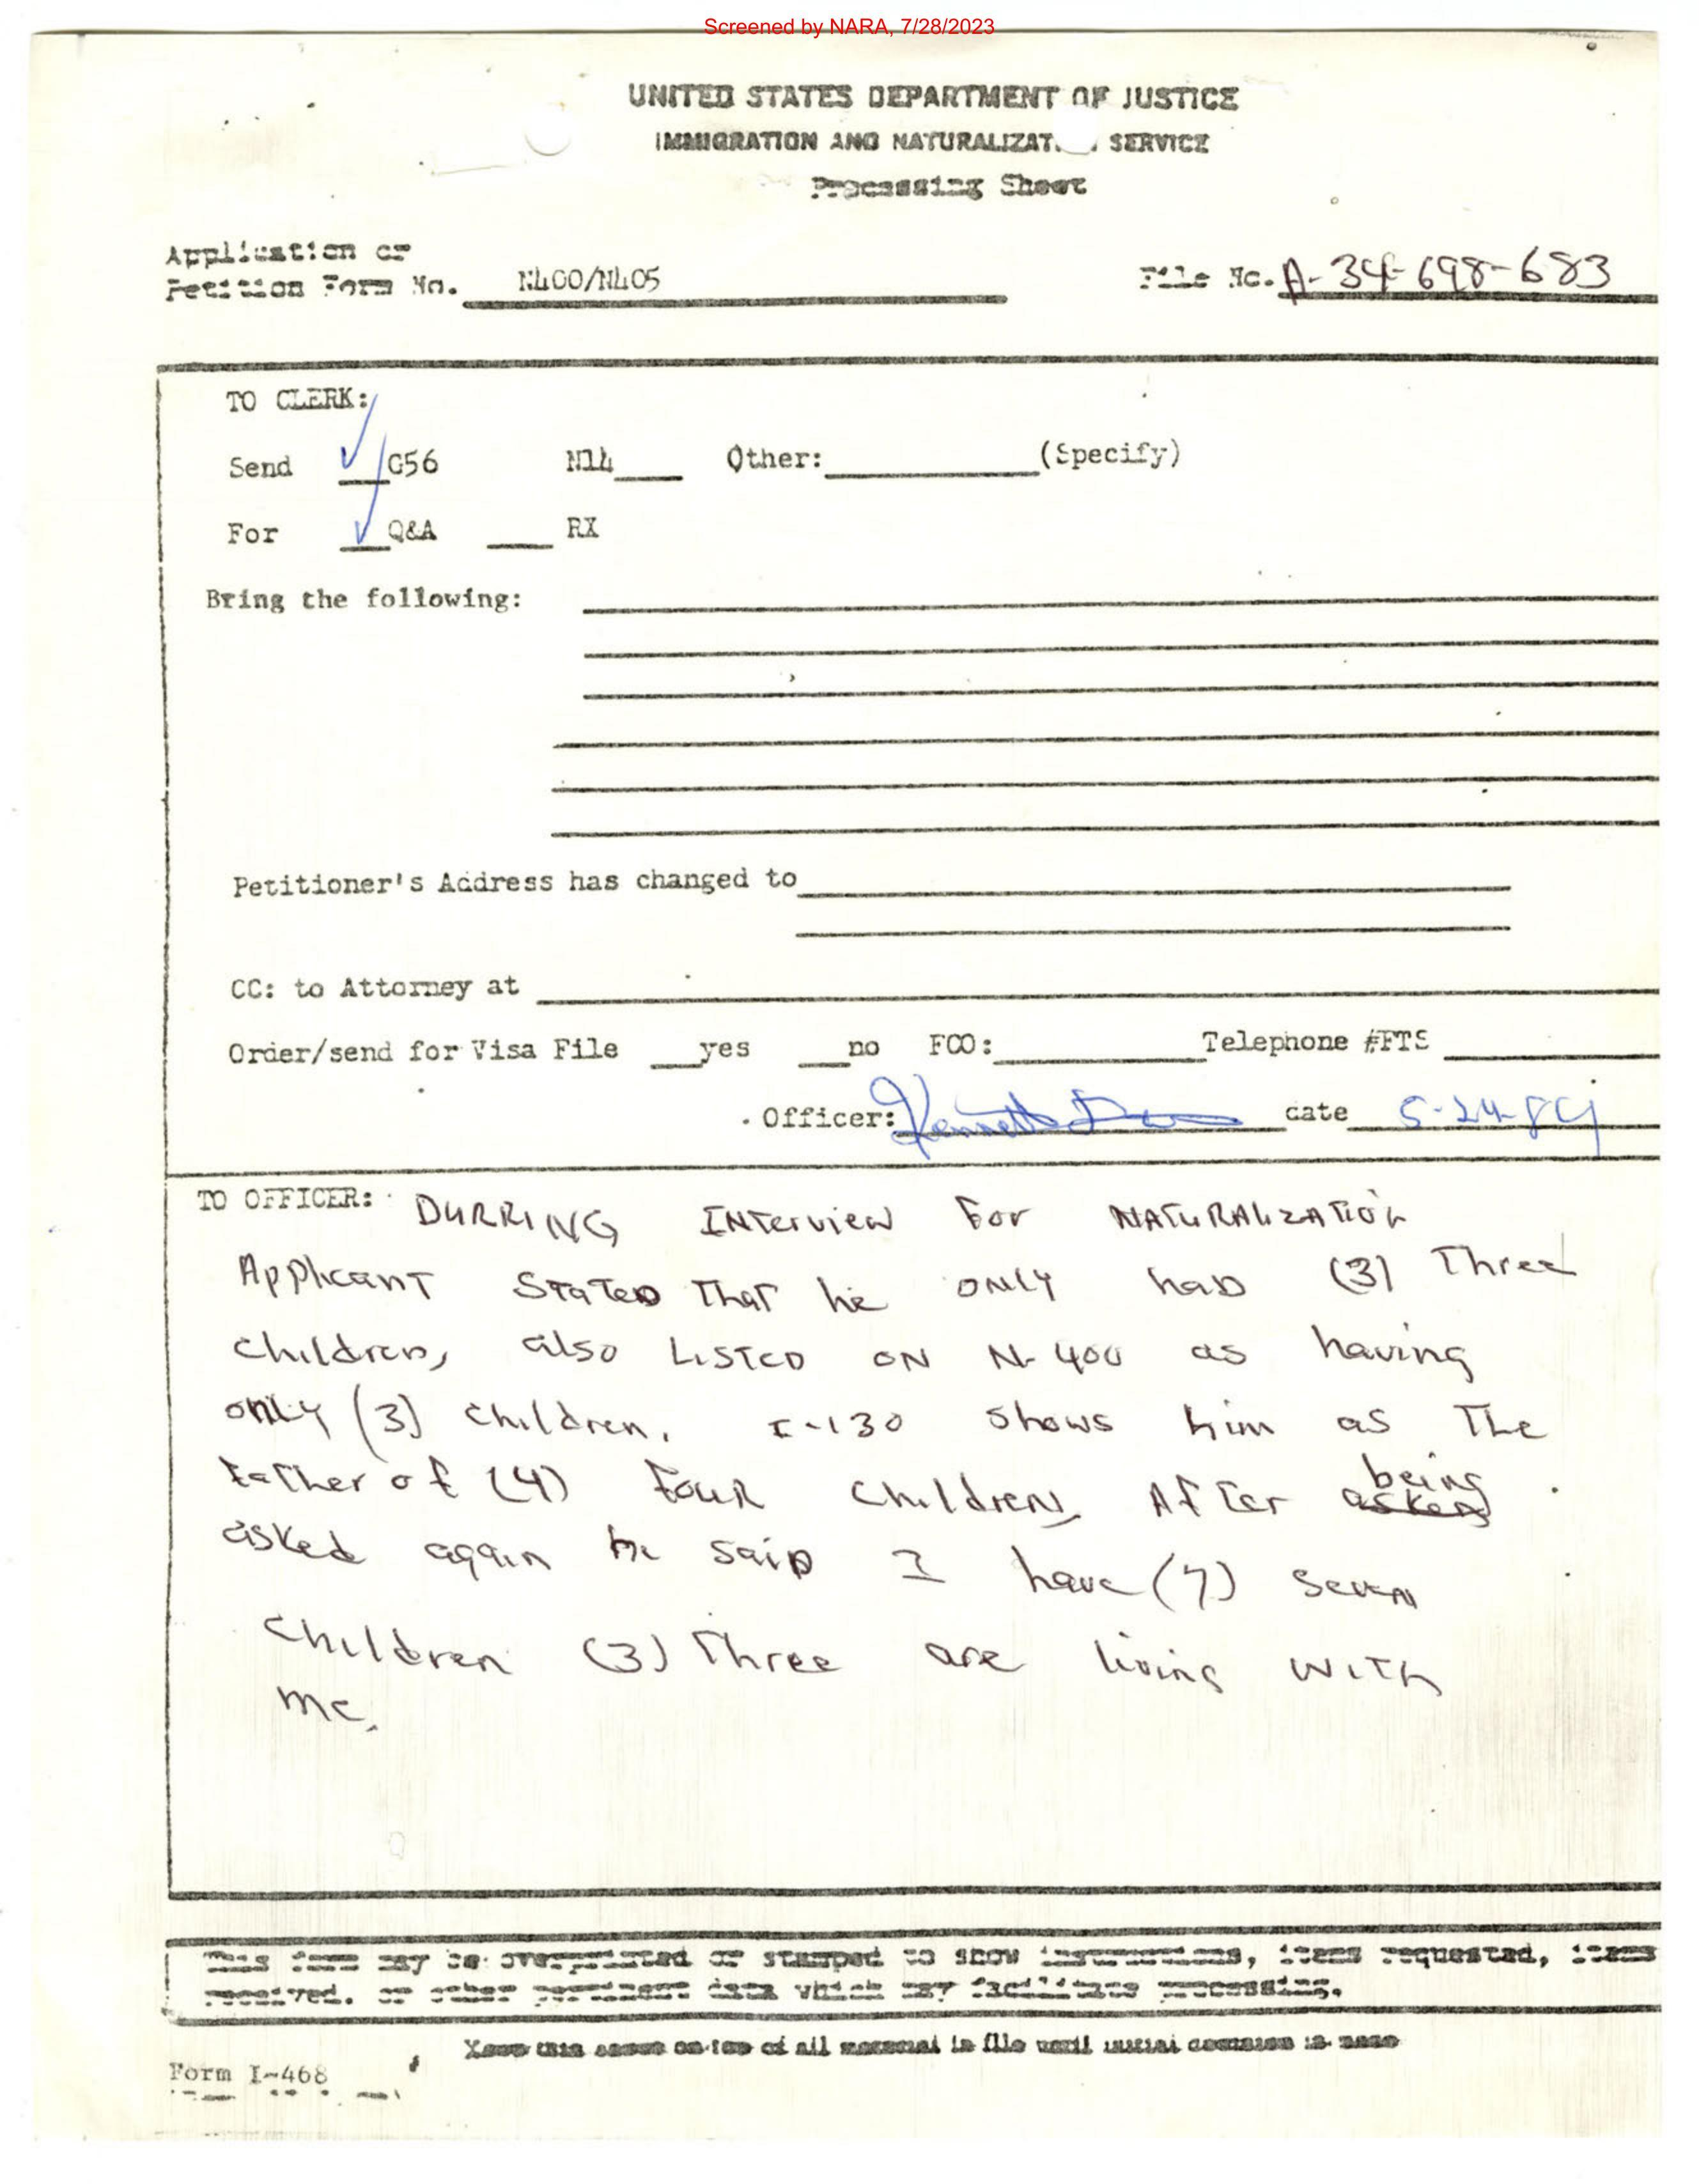 Screened by NARA, 7/28/2023
UNITED STATES DEPARTMENT OF JUSTICE
IMMIGRATION AND NATURALIZAT. . SERVICE
Processing Sheet
Application or
Petition Form No. N400/N405 File No. A-34-698-683
TO CLERK:
Send ✓ G56 N14 Other: (Specify)
For ✓ Q&A RX
Bring the following:
Petitioner's Address has changed to
CC: to Attorney at
Order/send for Visa File yes no FCO: Telephone #FTS
Officer: Kenneth date 5-24-84
TO OFFICER: DURRING INterview For NATURALIZATION
Applicant STATED THAT he ONLY has (3) Three
children, also LISTED ON N-400 as having
only (3) children. I-130 shows him as The
Father of (4) Four children. AfTer being asked
asked again he said I have (7) seven
children (3) Three are living WITH
me.
This form may be overprinted or stamped to show instructions, items requested, items
received, or other pertinent data which may facilitate processing.
Keep this sheet on top of all material in file until initial decision is made
Form I-468